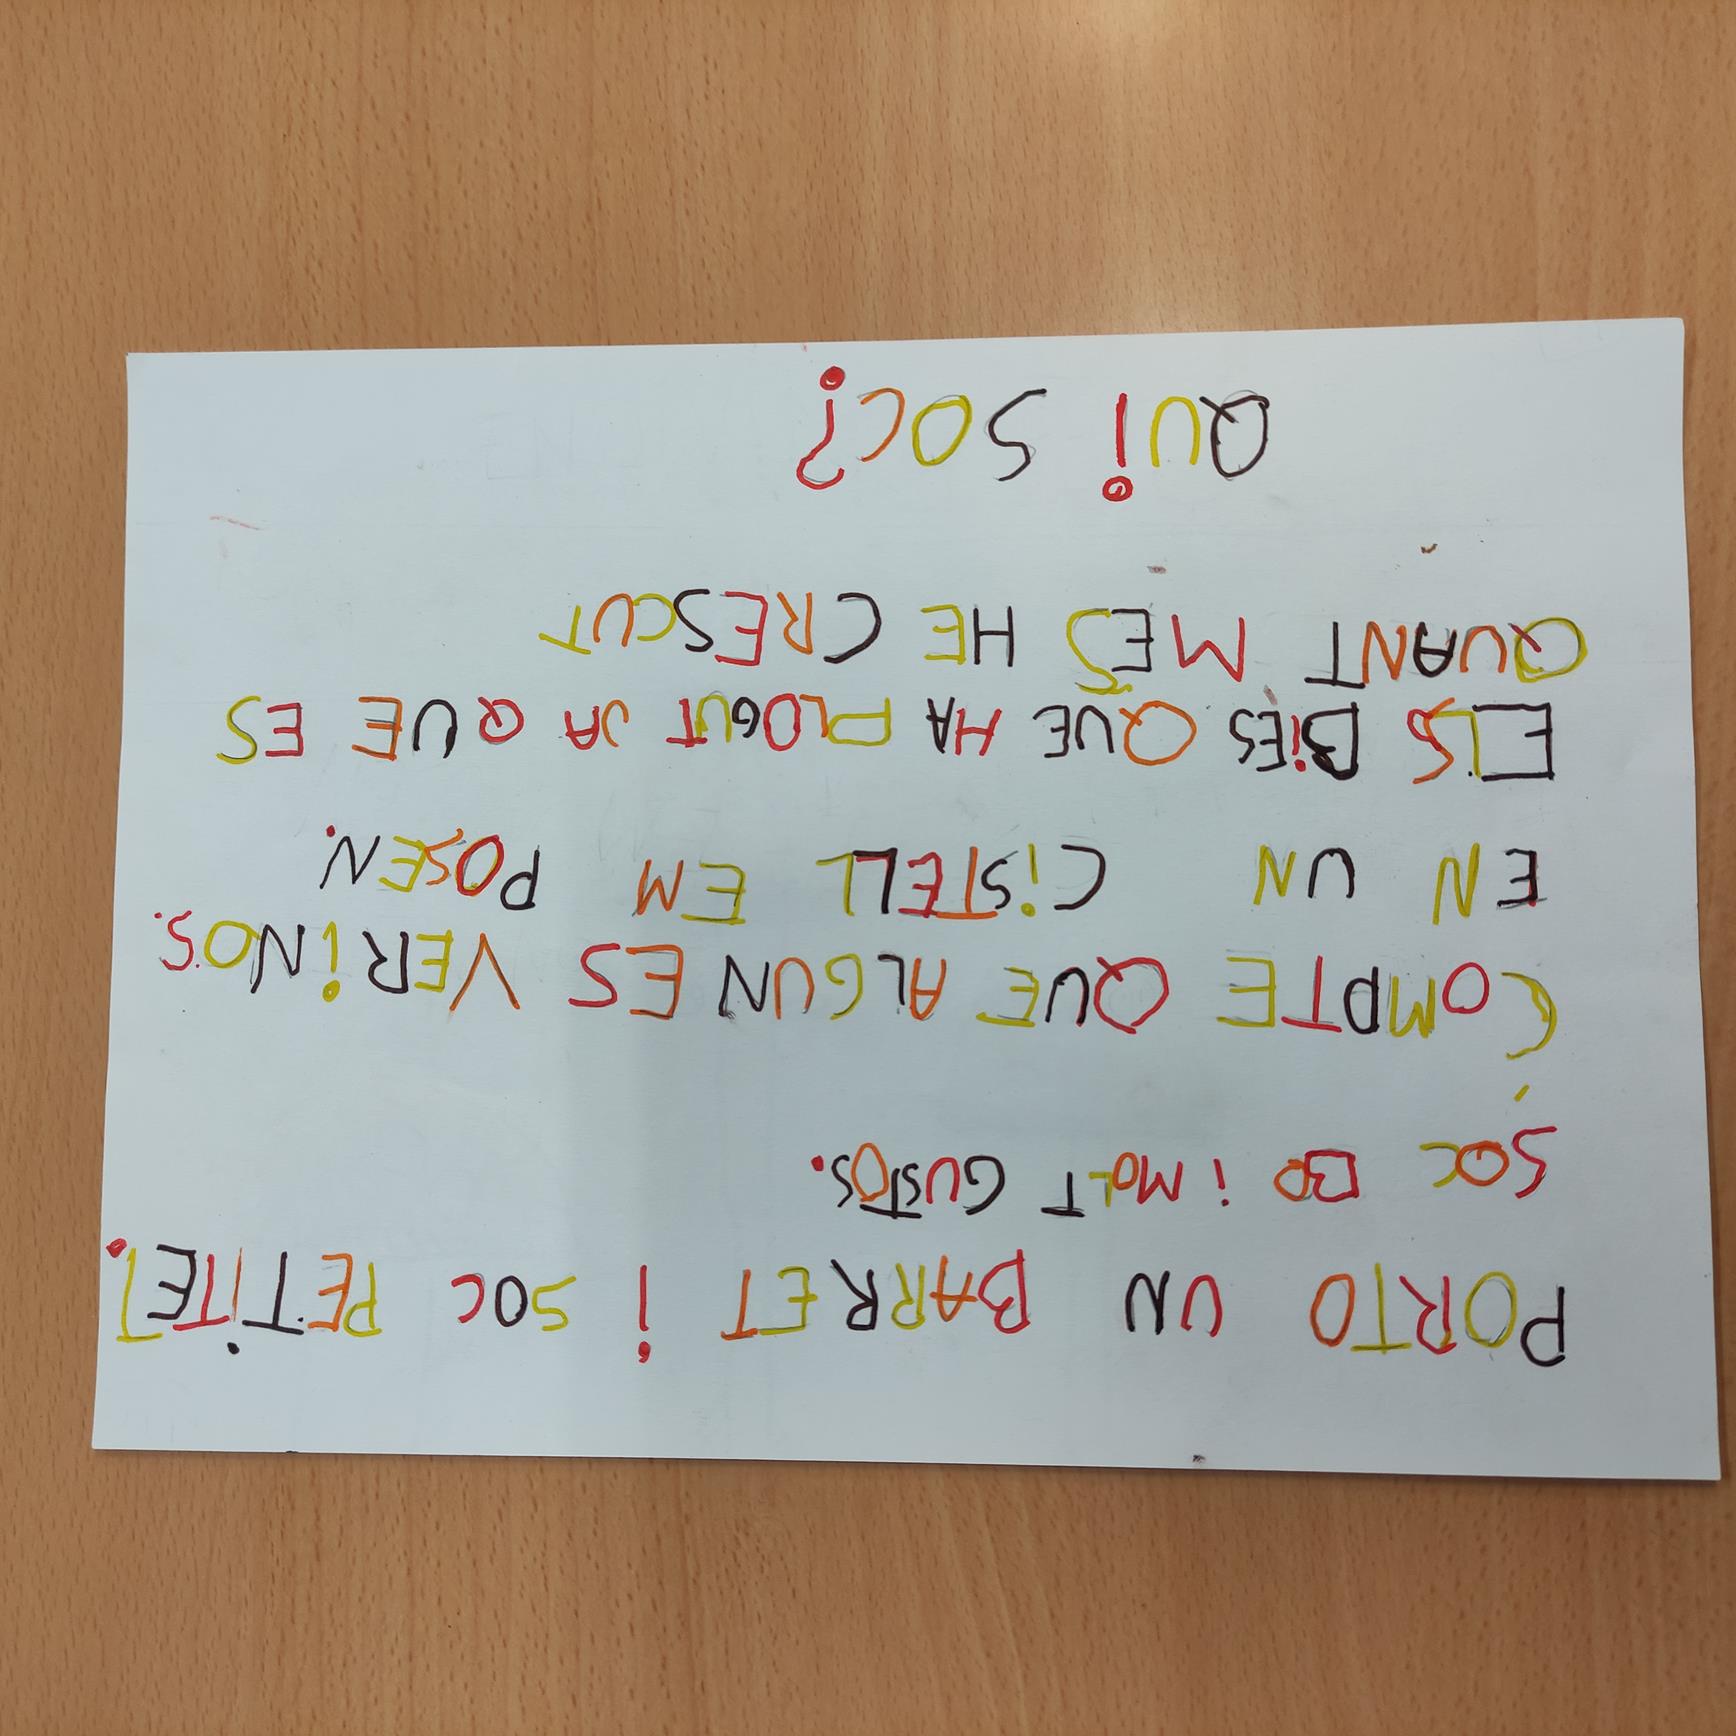 PORTO UN BARRET i SOC PETiTET.
SOC BO i MOLT GUSTOS.
COMPTE QUE ALGUN ES VERiNOS.
EN UN CiSTELL EM POSEN.
ELS DiES QUE HA PLOGUT JA QUE ES
QUANT MES HE CRESCUT
QUi SOC?